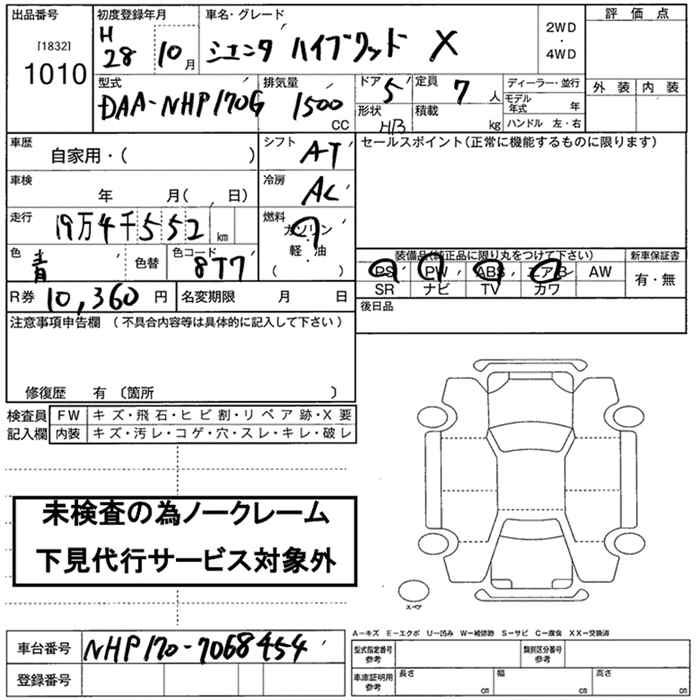 出品番号 初度登録年月 車名・グレード 評価点
[1832] 1010 H 28 10月 シエンタ ハイブリッド X 2WD・4WD
型式 排気量 ドア 5 定員 7人 ディーラー・並行 外装 内装
DAA-NHP170G 1500 CC 形状 H/B 積載 kg モデル年式 年
ハンドル 左・右
車歴 シフト AT セールスポイント(正常に機能するものに限ります)
自家用・( )
車検 年 月( 日) 冷房 AC
走行 19万4千552km 燃料 ガソリン 軽・油 ( )
色 青 色替 色コード 8T7 装備品(純正品に限り丸をつけて下さい) 新車保証書
PS PW ABS エアB AW 有・無
SR ナビ TV カワ
R券 10,360円 名変期限 月 日 後日品
注意事項申告欄 (不具合内容等は具体的に記入して下さい)
修復歴 有 (箇所 )
検査員 FW キズ・飛石・ヒビ割・リペア跡・X要
記入欄 内装 キズ・汚レ・コゲ・穴・スレ・キレ・破レ
未検査の為ノークレーム
下見代行サービス対象外
スペア
A-キズ E-エクボ U-凹み W-補修跡 S-サビ C-腐食 XX-交換済
車台番号 NHP170-7068454 型式指定番号 参考 類別区分番号 参考
登録番号 車庫証明用 参考 長さ cm 幅 cm 高さ cm